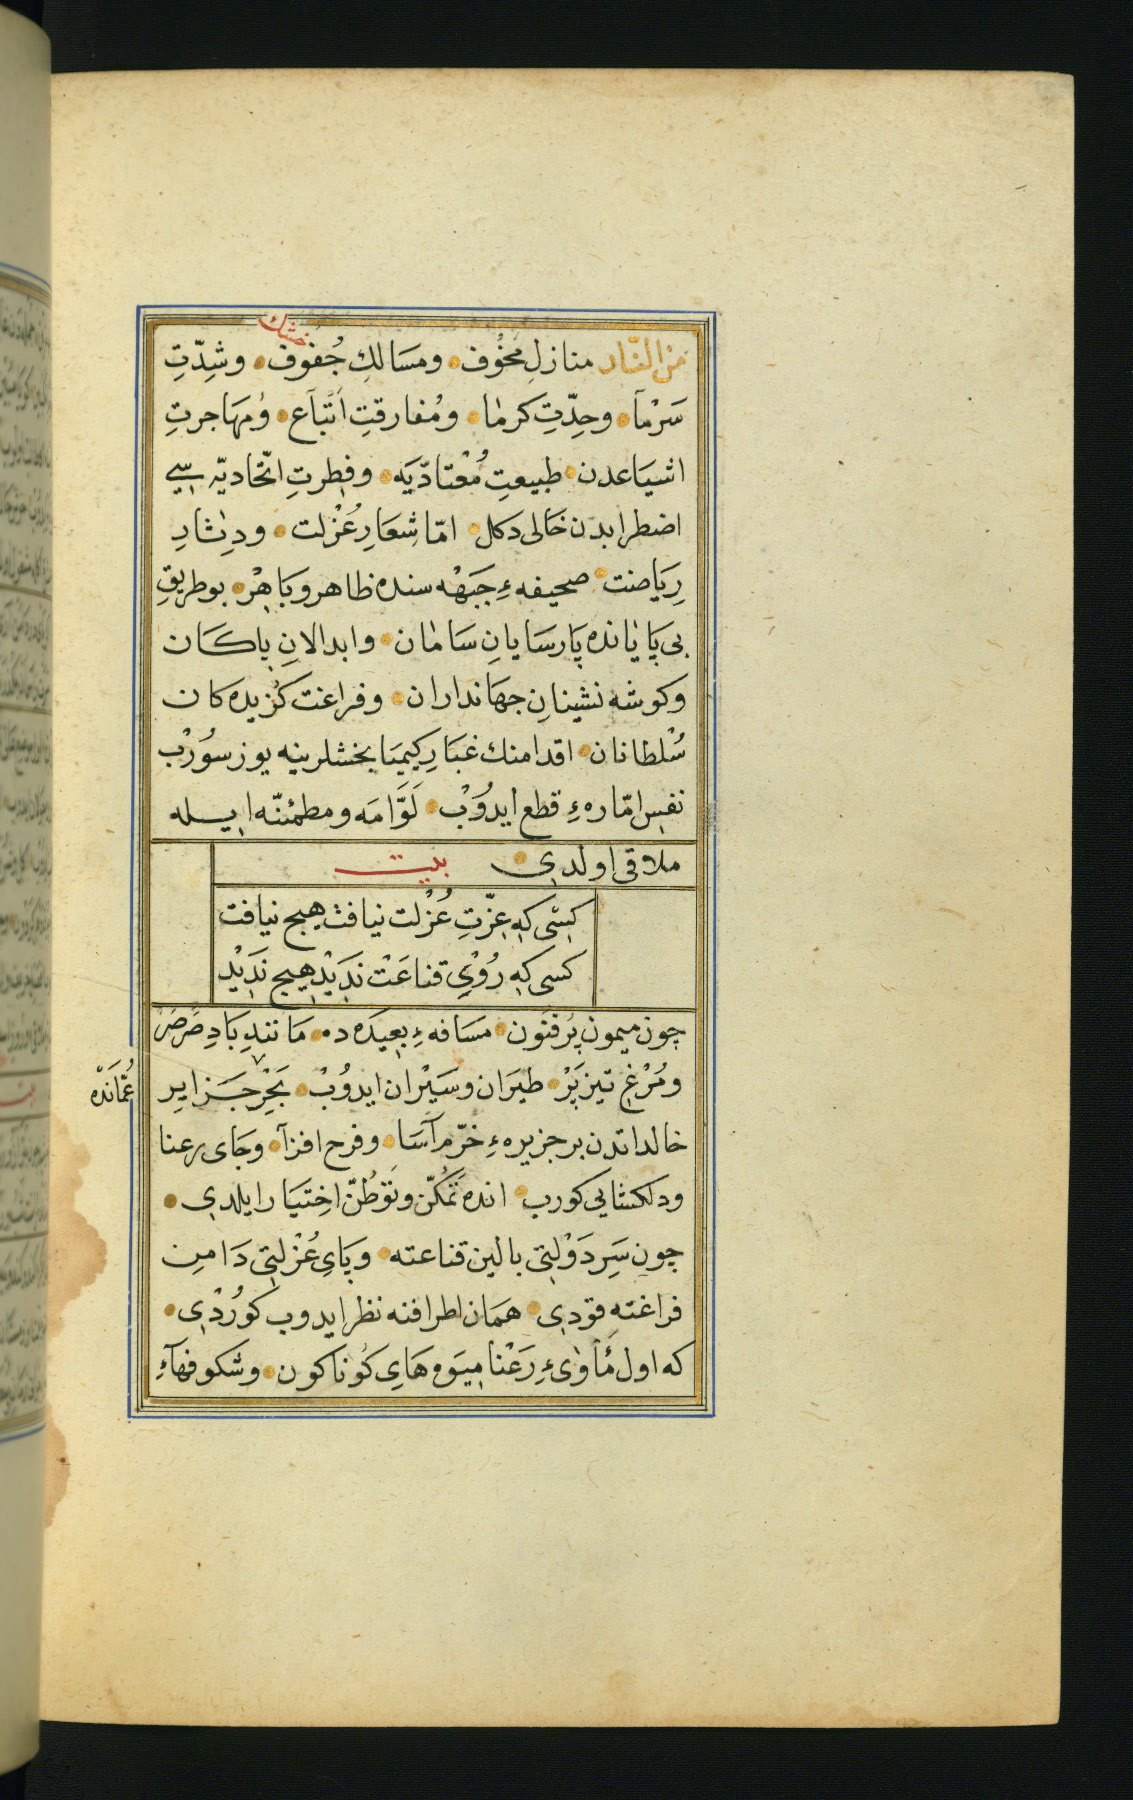 خشك
من النّار منازلِ مخُوف ومسَالكِ جُفوف وشِدّتِ
سَرْمآ وحِدّتِ كرمٰا ومُفارقتِ اَتّبآع وُمهَاجرتِ
اشيَاعدن طبيعتِ مُعْتادّيَه وفِطرتِ اتّحاديّه سيّيے
اضطرابدن خَالى دكل امّا شِعَارِ عُزْلت ودِثَارِ
رِيَاضت صحيفهءِ جَبَهْه سنده ظاهر وبَاهِرْ بو طريقِ
بى پَايَانده پَارسَايانِ سَامٰان وابدالانِ پاكَان
وكوشه نشينانِ جهَانداران وفراغت كُزيده كان
سُلْطانان اقدامنك غبَارِ كِيمِيَا بخشلرينه يوز سوُرْب
نفسِ امّارهءِ قطع ايدوُبْ لَوَّامَه ومطمئنّه ايسله
ملاقى اولدى بيت
كِسْى كه عِزّتِ عُزْلت نيافت هيچ نيافت
كسى كه رُوْىِ قناعَتْ نَدِيْد هيچ نَدِيْد
چون ميمون پرفنون مسَافهءِ بعيَده ده مَانندِ بَادِ صَرصَر
ومُرْغِ تيزپَرْ طيَران وسَيْران ايدوُبْ بَحْرِ جَزايرِ
عُمّاندَه
خالداتدن بر جزيرهءِ خرّم آسَا وفرح افزآ وجَاى رعنا
ودلكشايى كورب انده تَمكّن وتَوطُنّ اخِتيَار ايلدى
چون سَرِ دَوْلتِى بالين قناعته وپَاىِ عُزْلتِى دَامنِ
فراغته قودى همَان اطرافنه نظر ايدوب كورُدْى
كه اول مَأْوٰىءِ رَعْنا مِيَوه هَاىِ كُوناكون وشكوفهآءِ